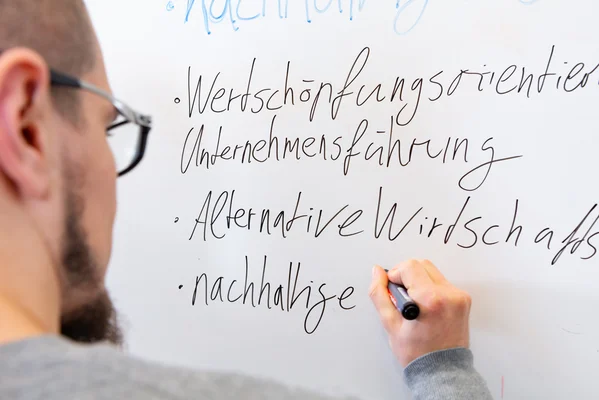 • Wertschöpfungsorientier
Unternehmensführung
• Alternative Wirtschafts
• nachhaltige